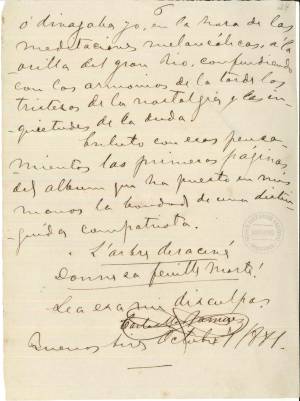 ó divagaba yo, en la hora de las
meditaciones melancólicas, á la
orilla del gran Rio, confundiendo
con las armonias de la tarde las
tristezas de la nostalgia y las in-
quietudes de la duda.
Enluto con esos pensa-
mientos las primeras páginas
del album que ha puesto en mis
manos la bondad de una distin-
guida compatriota.
L'arbre déraciné
Donne sa feuille morte!
Sea esa mi disculpa
Buenos Aires Octubre